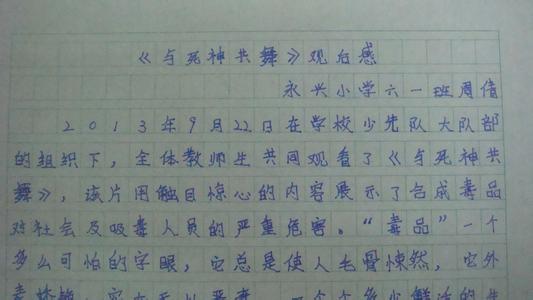 《与死神共舞》观后感
永兴小学六一班周倩
2013年9月22日在学校少先队大队部
的组织下，全体教师生共同观看了《与死神共
舞》，该片用触目惊心的内容展示了合成毒品
对社会及吸毒人员的严重危害。“毒品”一个
多么可怕的字眼，它总是使人毛骨悚然，它外